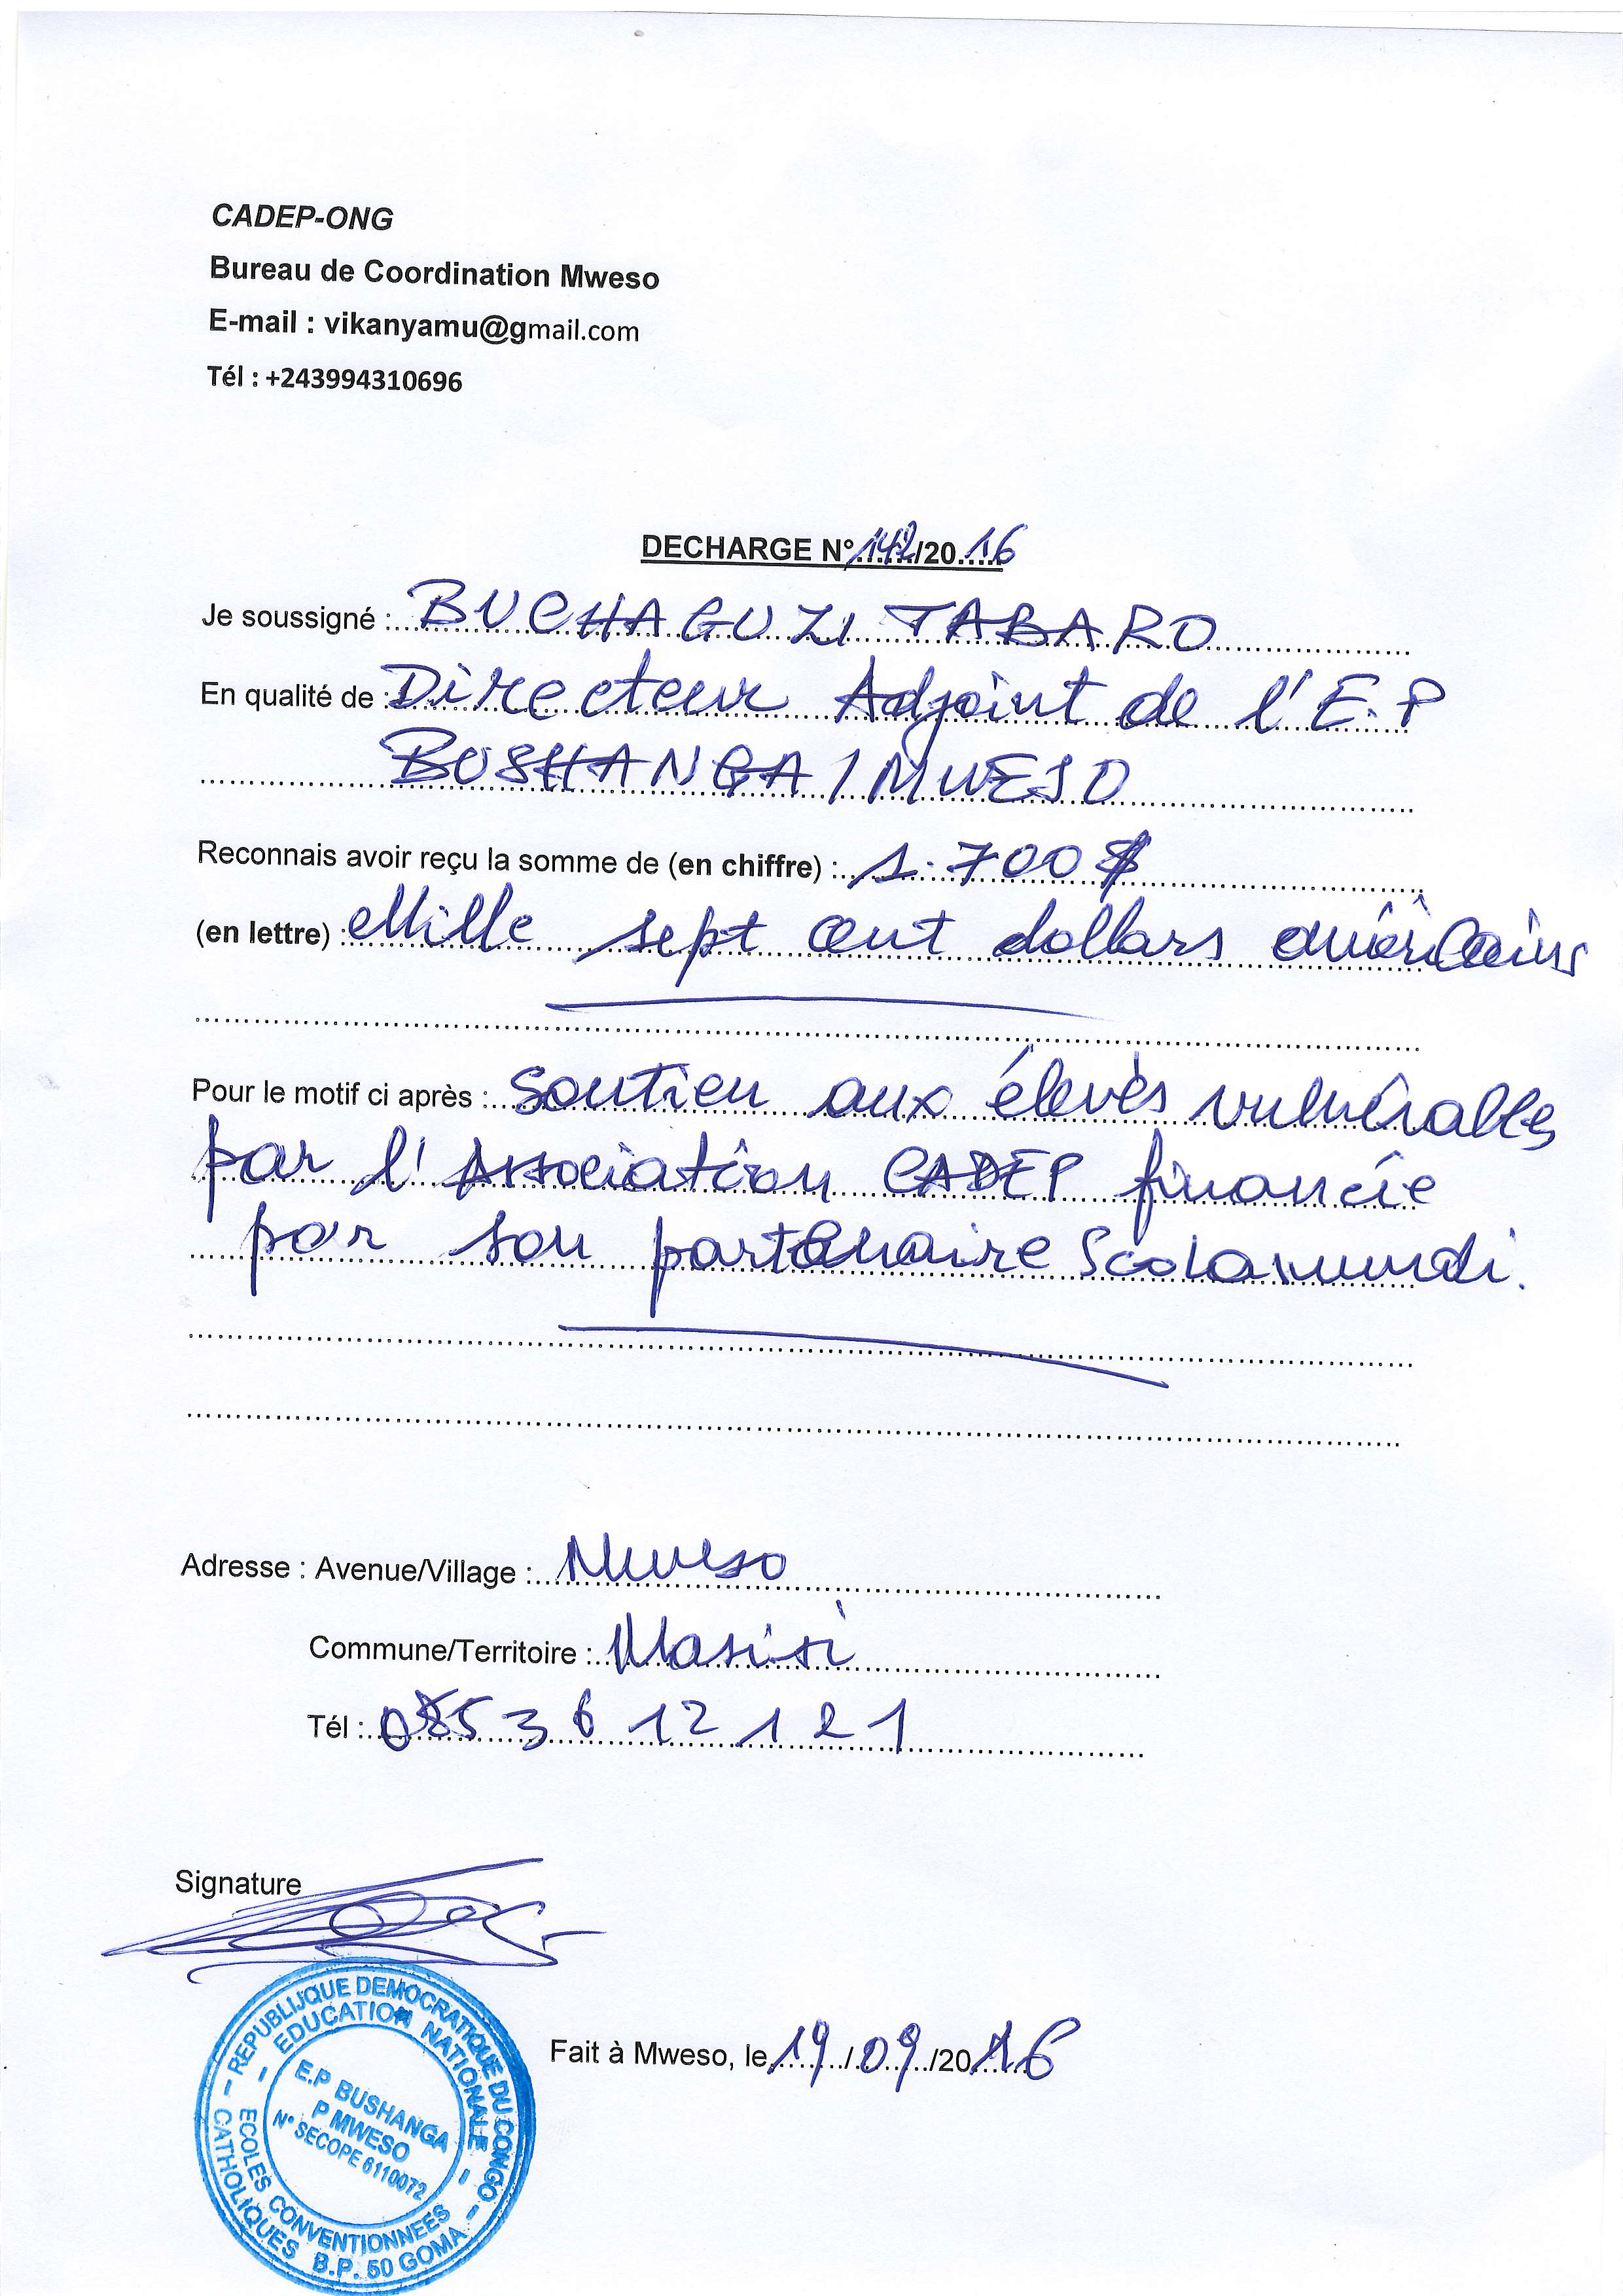 CADEP-ONG
Bureau de Coordination Mweso
E-mail : vikanyamu@gmail.com
Tél : +243994310696
DECHARGE N° 142/20 16
Je soussigné : BUCHAGUZI TABARO
En qualité de : Directeur Adjoint de l'E.P
BUSHANGA / MWESO
Reconnais avoir reçu la somme de (en chiffre) : 1.700 $
(en lettre) : Mille sept cent dollars américains
Pour le motif ci après : Soutien aux élevès vulnérables
par l'Association CADEP financée
par son partenaire Scolamundi.
Adresse : Avenue/Village : Mweso
Commune/Territoire : Masisi
Tél : 0853612121
Signature
REPUBLIQUE DEMOCRATIQUE DU CONGO
EDUCATION NATIONALE
E.P BUSHANGA
P MWESO
N° SECOPE 6110072
ECOLES CONVENTIONNEES
CATHOLIQUES B.P. 50 GOMA
Fait à Mweso, le 19/09/2016